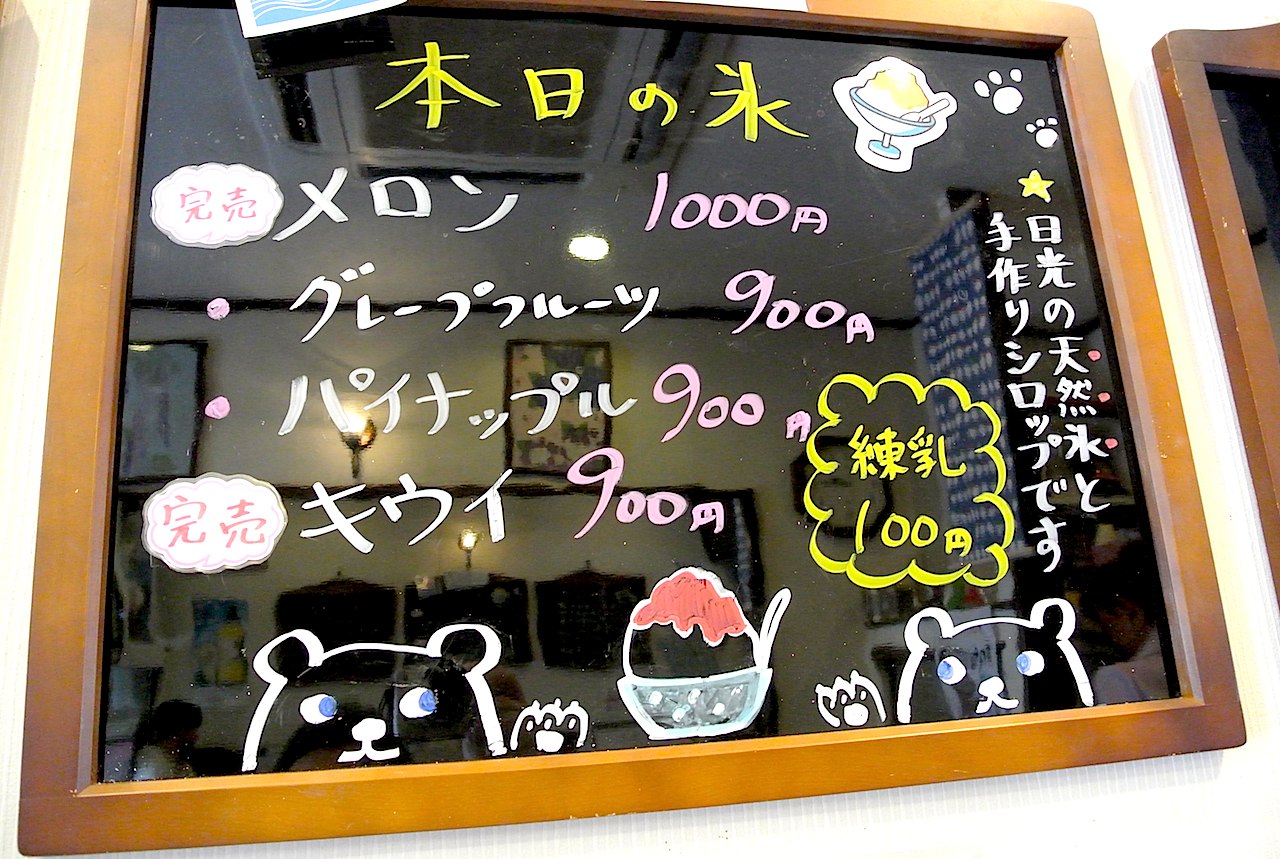 本日の氷
完売 メロン 1000円
・グレープフルーツ 900円
・パイナップル 900円
完売 キウイ 900円
練乳
100円
★日光の天然氷と
手作りシロップです